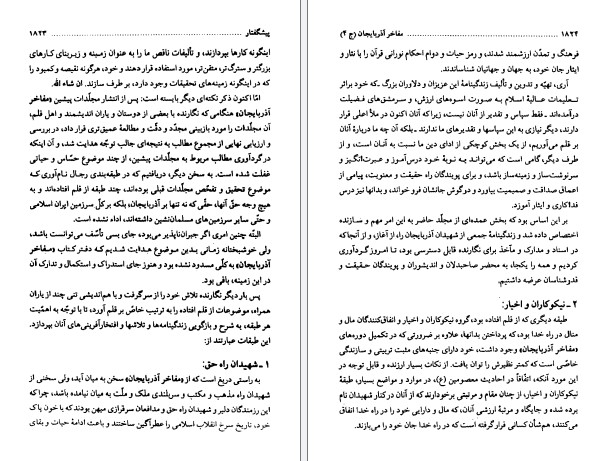 پیشگفتار ۱۸۲۳
اینگونه کارها بپردازند، و تألیفات ناقص ما را به عنوان زمینه و زیربنای کارهای
بزرگتر و سترگ‌تر، متقن‌تر، مورد استفاده قرار دهند و خود، هرگونه نقیصه و کمبود را
که در اینگونه زمینه‌های تحقیقات وجود دارد، بر طرف سازند. ان شاء الله.
امّا اکنون ذکر نکته‌ای دیگر بایسته است: پس از انتشار مجلّدات پیشین «مفاخر
آذربایجان» هنگامی که نگارنده با بعضی از دوستان و یاران اندیشمند و اهل قلم،
آن مجلّدات را مورد بازبینی مجدّد و دقّت و مطالعهٔ عمیق‌تری قرار داد، در بررسی
و ارزیابی نهایی از مجموع مطالب به نتیجه‌ای جالب توجّه هدایت شد، و آن اینکه
درگردآوری مطالب مربوط به مجلّدات پیشین، از چند موضوع حسّاس و حیاتی
غفلت شده است. به سخن دیگر، دریافتیم که در طبقه‌بندی رجال نام‌آوری که
موضوع تحقیق و تفحّص مجلّدات قبلی بوده‌اند، چند طبقه از قلم افتاده‌اند و به
هیچ وجه حقّ آنها، حقّی که نه تنها بر آذربایجان، بلکه برکلّ سرزمین ایران اسلامی
و حتّی سایر سرزمین‌های مسلمان‌نشین داشته‌اند، اداء نشده است.
البتّه چنین امری اگر جبران‌ناپذیر می‌بود، جای بسی تأسّف می‌توانست باشد،
ولی خوشبختانه زمانی بدین موضوع هدایت شدیم که دفتر کتاب «مفاخر
آذربایجان» به کلّی مسدود نشده بود و هنوز جای استدراک و استکمال و تدارک آن
در این زمینه، باقی بود.
پس بار دیگر نگارنده تلاش خود را از سرگرفت و با هم‌اندیشی تنی چند از یاران
همراه، موضوعات از قلم افتاده را به ترتیب خاصّ بر قلم آورد، تا با توجّه به اهمّیت
هر طبقه، به شرح و بازگویی زندگینامه‌ها و تلاشها و افتخارآفرینی‌های آنان بپردازد.
این طبقات عبارتند از:
۱ ـ شهیدان راه حق:
به راستی دریغ است که از «مفاخر آذربایجان» سخن به میان آید، ولی سخنی از
شهیدان راه مذهب و مکتب و سربلندی ملک و ملّت به میان نیامده باشد، چرا که
این رزمندگان دلیر و شهیدان راه حق و مدافعان سرافرازی میهن بودند که با خون پاک
خود، تاریخ سرخ انقلاب اسلامی را عطرآگین ساختند و باعث ادامهٔ حیات و بقای
۱۸۲۴ مفاخر آذربایجان (ج ۴)
فرهنگ و تمدّن ارزشمند شدند، و رمز حیات و دوام احکام نورانی قرآن را با نثار و
ایثار جان خود، به جهان و جهانیان شناساندند.
آری، تهیّه و تدوین و تألیف زندگینامهٔ این عزیزان و دلاوران بزرگ ـکه خود براثر
تعلیمات عالیهٔ اسلام به صورت اسوه‌های ارزش، و سرمشق‌های فضیلت
درآمده‌اندـ فقط سپاس و تقدیر از آنان نیست، زیرا که آنان اکنون در ملأ اعلی قرار
دارند، دیگر نیازی به این سپاسها و تقدیرهای ما ندارند ـبلکه آن چه ما دربارهٔ آنان
بر قلم می‌آوریم، از یک بخش کوچکی از ادای دین ما نسبت به آنان است، و از
طرف دیگر، گامی است که می‌تواند به نوبهٔ خود درس‌آموز و عبرت‌انگیز و
سرنوشت‌ساز و زمینه‌ساز باشد، و برای پویندگان راه حقیقت و معنویت، پیامی از
اعماق صداقت و صمیمیت بیاورد و درگوش جانشان فرو خواند، و بدانها نیز درس
فداکاری و ایثار آموزد.
بر این اساس بود که بخش عمده‌ای از مجلّد حاضر به این امر مهم و سازنده
اختصاص داده شد و زندگینامهٔ جمعی از شهیدان آذربایجان راه از آغاز، و از آنجا که
در اسناد و مدارک و مآخذ برای نگارنده قابل دسترسی بود، تا امروز گردآوری
کردیم و همه را یکجا، به محضر صاحبدلان و اندیشوران و پویندگان حقیقت و
قدرشناسان عرضه داشتیم.
۲ ـ نیکوکاران و اخیار:
طبقه دیگری که از قلم افتاده بود، گروه نیکوکاران و اخیار و انفاق‌کنندگان مال و
منال در راه خدا بود، که پرداختن بدانها، علاوه بر ضرورتی که در تکمیل دوره‌های
«مفاخر آذربایجان» وجود داشت، خود دارای جنبه‌های مثبت تربیتی و سازندگی
خاصّی است که کمتر نظیرش را توان یافت. از نکات بسیار ارزنده و قابل توجه در
این مورد آنکه، اتفّاقاً در احادیث معصومین (ع)، در موارد و مواضع بسیار، طبقهٔ
نیکوکاران و اخیار، از چنان مقام و مرتبتی برخوردارند که از آنان درکنار شهیدان نام
برده شده و جایگاه و مرتبهٔ ارزشی آنان، که مال و دارایی خود را در راه خدا انفاق
می‌کنند، هم‌شأن کسانی قرارگرفته است که در راه خدا جان خود را می‌بازند.